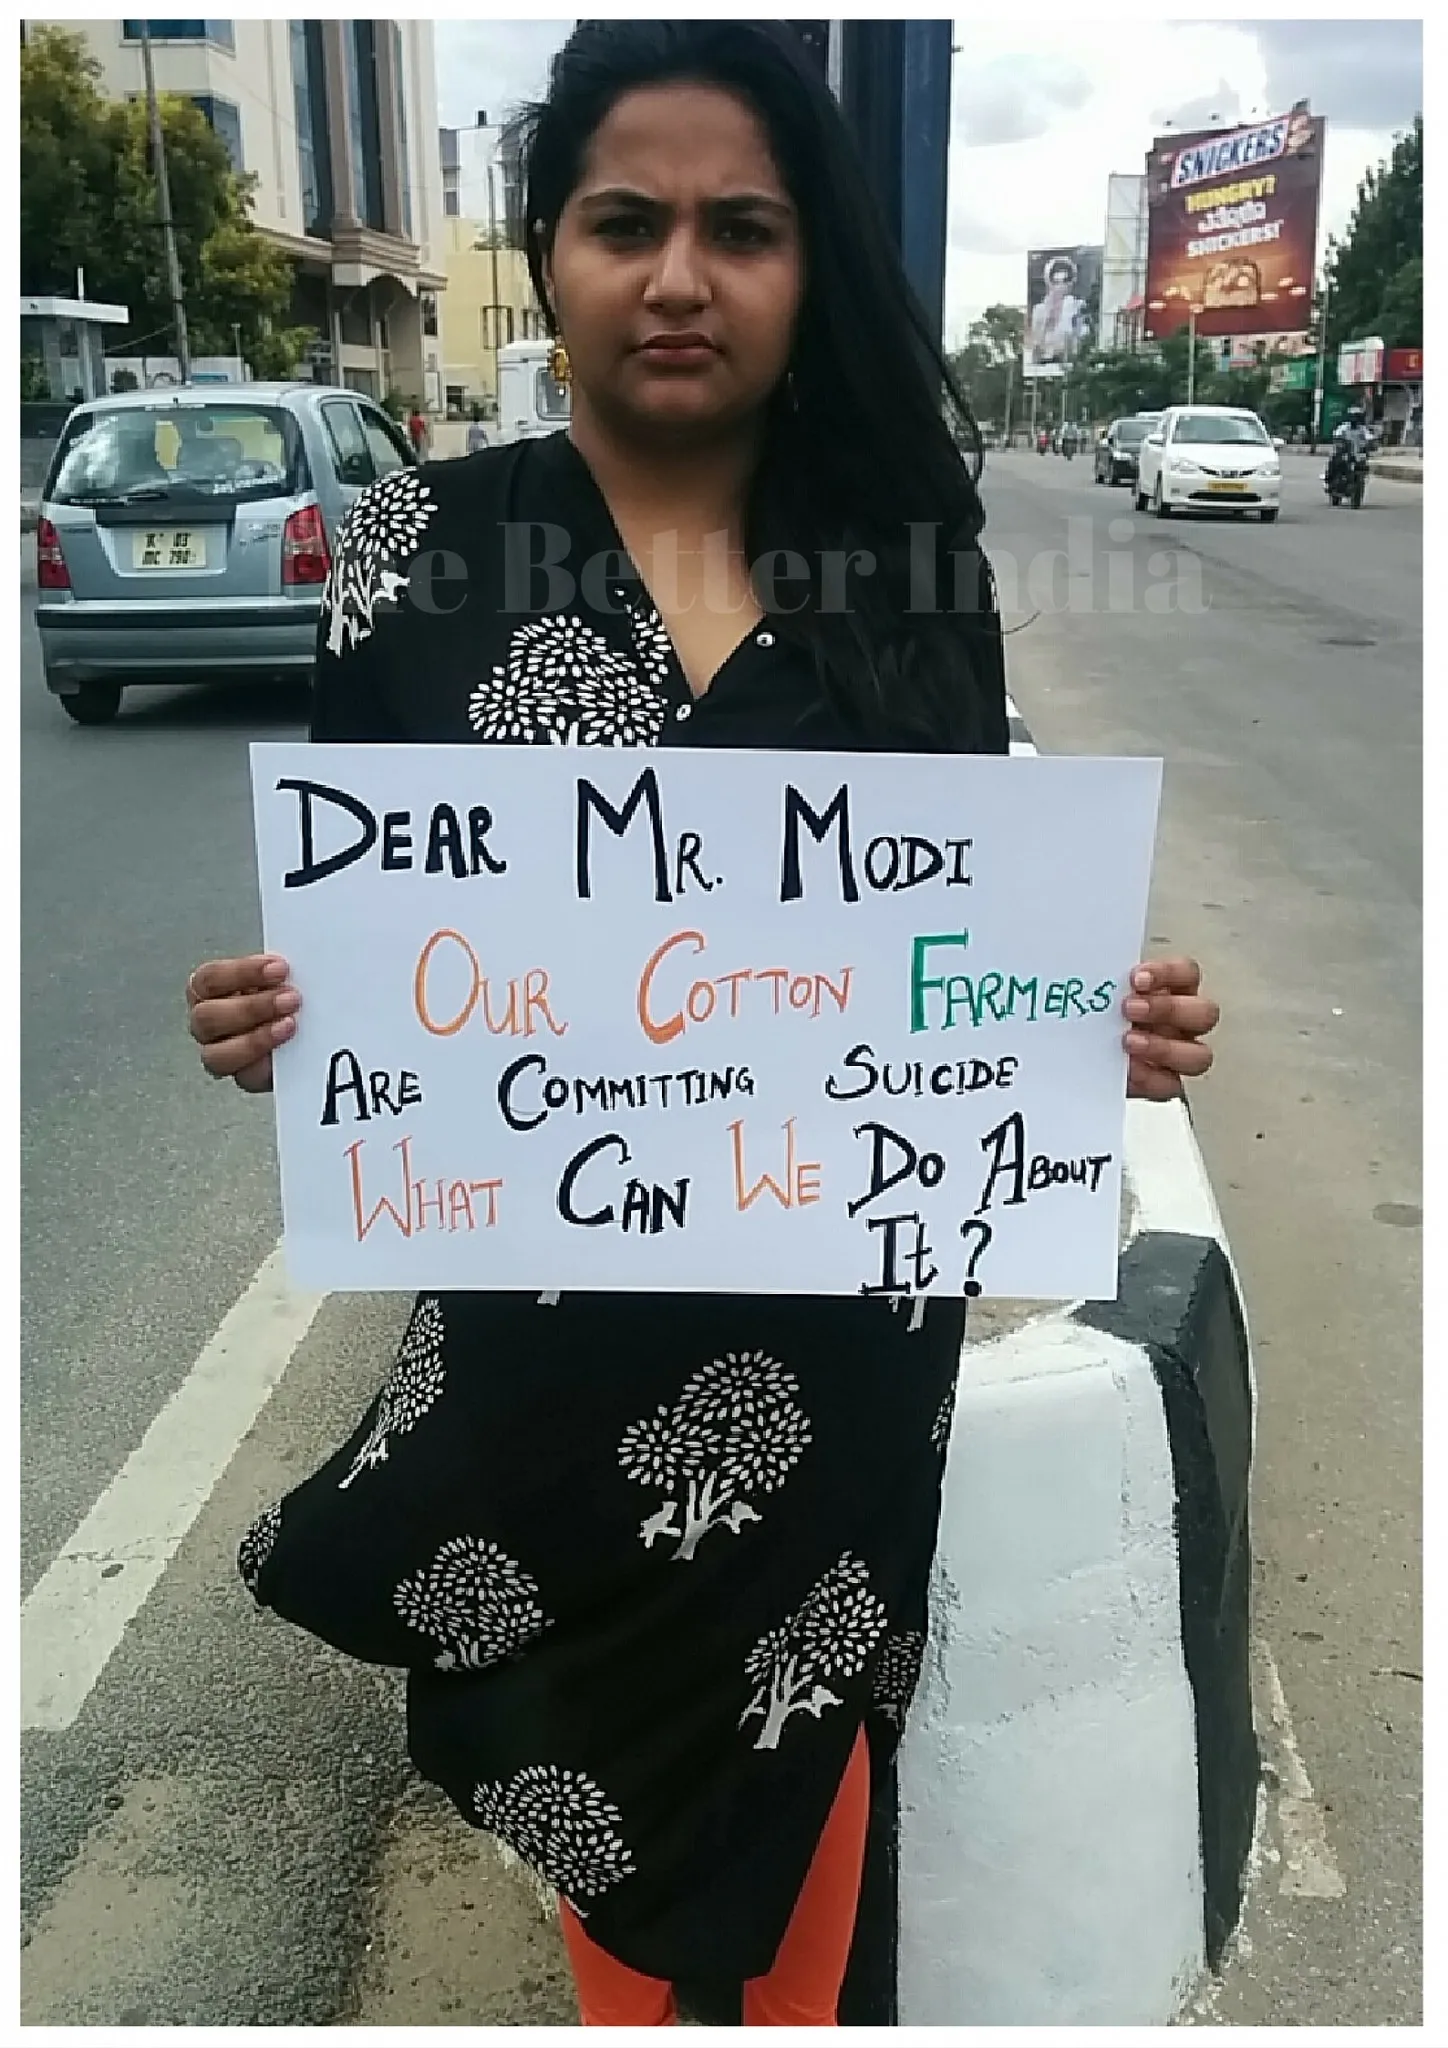 SNICKERS
HUNGRY?
SNICKERS!
Better India
DEAR MR. MODI
OUR COTTON FARMERS
ARE COMMITTING SUICIDE
WHAT CAN WE DO ABOUT
It?